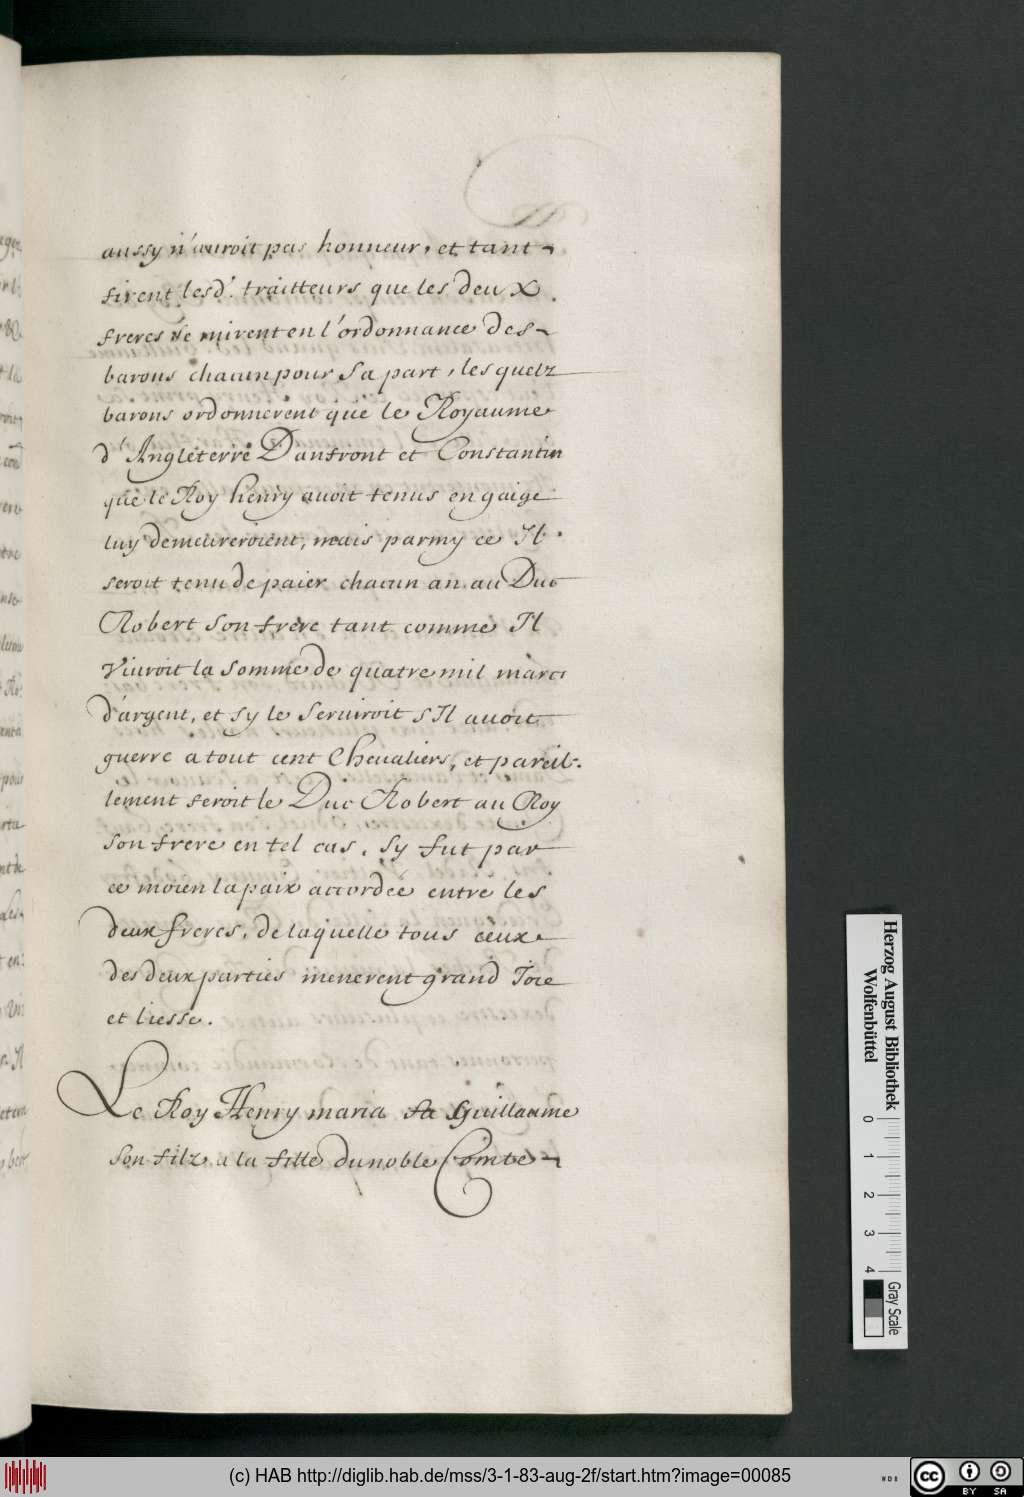 aussy n'auroit pas honneur, et tant
firent lesd'. traitteurs que les deux
freres se mirent en l'ordonnance des
barons chacun pour sa part, lesquelz
barons ordonnerent que le Royaume
d'Angleterre Danfront et Constantin
que le Roy henry avoit tenus en gaige
luy demeureroient, mais parmy ce Il
seroit tenu de paier chacun an au Duc
Robert son frere tant comme Il
Viuroit la somme de quatre mil marcs
d'argent, et sy le seruiroit s'Il auoit
guerre a tout cent Chevaliers, et pareil-
lement seroit le Duc Robert au Roy
son frere en tel cas. sy fut par
ce moien la paix accordée entre les
deux freres, de laquelle tous ceux
des deux parties menerent grand Joie
et liesse.
Le Roy Henry maria sa Guillaume
son filz a la fille du noble Comte
Herzog August Bibliothek
Wolfenbüttel
0 1 2 3 4
Gray Scale
(c) HAB http://diglib.hab.de/mss/3-1-83-aug-2f/start.htm?image=00085
cc BY SA